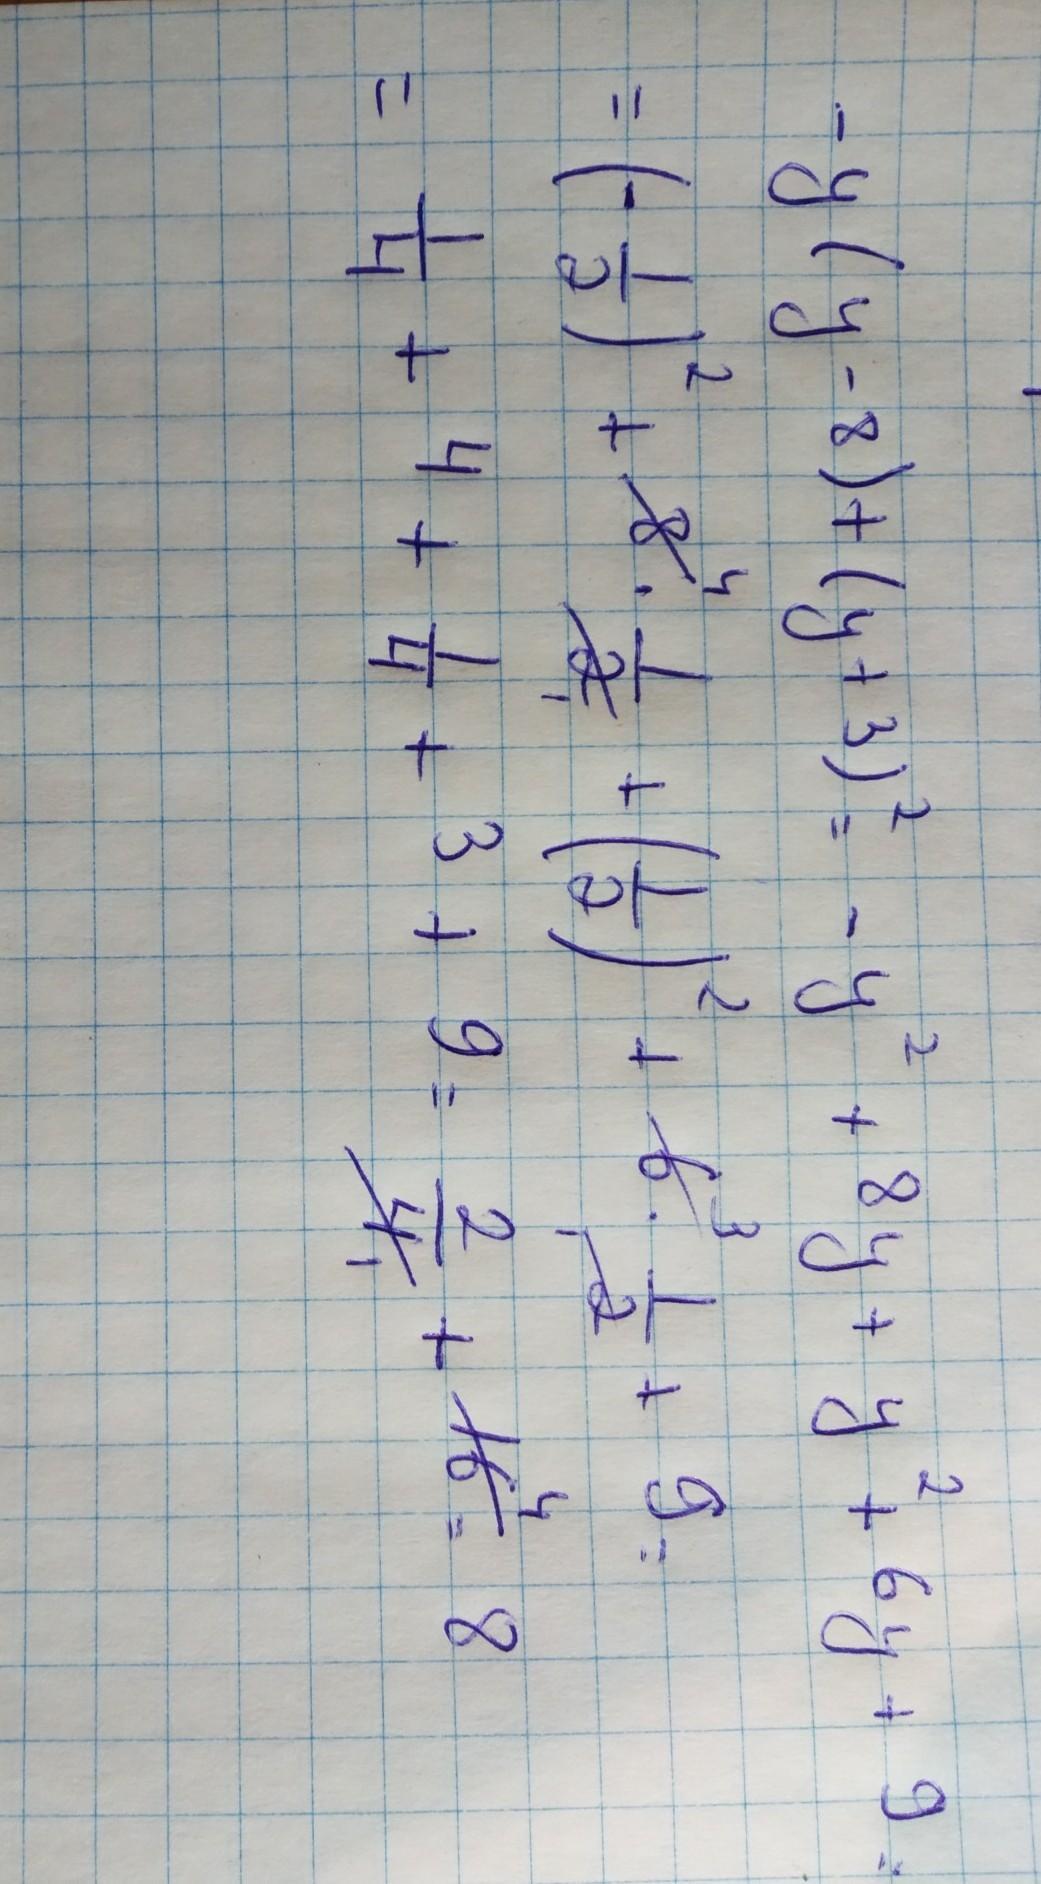 -y(y-8)+(y+3)²= -y²+8y+y²+6y+9=
=(-1/2)²+8⁴·1/2₁+(1/2)²+6³·1/2₁+9=
=1/4+4+1/4+3+9=2/4₁+16⁴=8